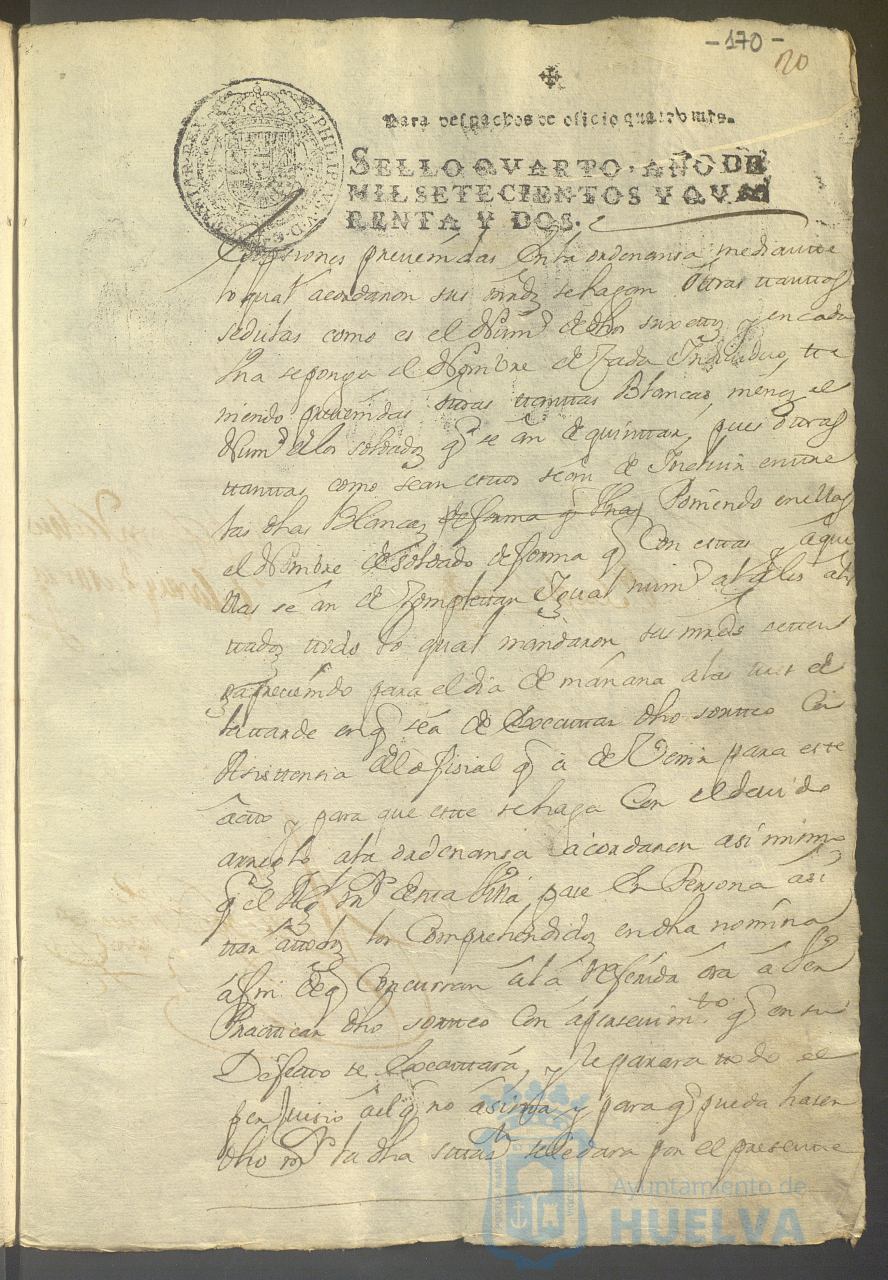 -170-
20
Para despachos de oficio quatro mrs.
SELLO QVARTO, AÑO DE
MIL SETECIENTOS Y QVA
RENTA Y DOS.
PHILIPPUS V D G
HISPANIAR REX
prevenidas en la ordenansa mediante
lo qual acordaron sus mrds se hagan otras tantas
sedulas como es el Num.º de dhos suxetos y en cada
Una se ponga el Nombre de Cada Individuo, te
niendo prevenidas otras tantas Blancas, menos el
Num.º de los soldados q se an de quintar, pues otras
tantas como sean estos sean de Incluir entre
las dhas Blancas de forma q Unas Poniendo en ellas
el Nombre de Soldado de forma q Con estas y aque
llas se an de Completar Igual num.º al de los alis
tados todo lo qual mandaron sus mrds
para el dia de mañana a las tres de
la tarde en q se á de Executar dho sorteo Con
Asistensia del ofisial q á de Venir para este
acto y para que este se haga Con el devido
arreglo a la ordenansa acordaron asi mismo
q el Alg.l m.r de esta Villa, pase En Persona á si
tar á todos los Comprehendidos en dha nomina
á fin de q Concurran á la referida ora á Ver
Practicar dho sorteo Con apersevim.to q en su
Defecto se Executará, y le parara todo el
perjuisio al q no asista y para q pueda haser
dho m.r la dha sitas.n se le dara por el presente
Ayuntamiento de
HUELVA